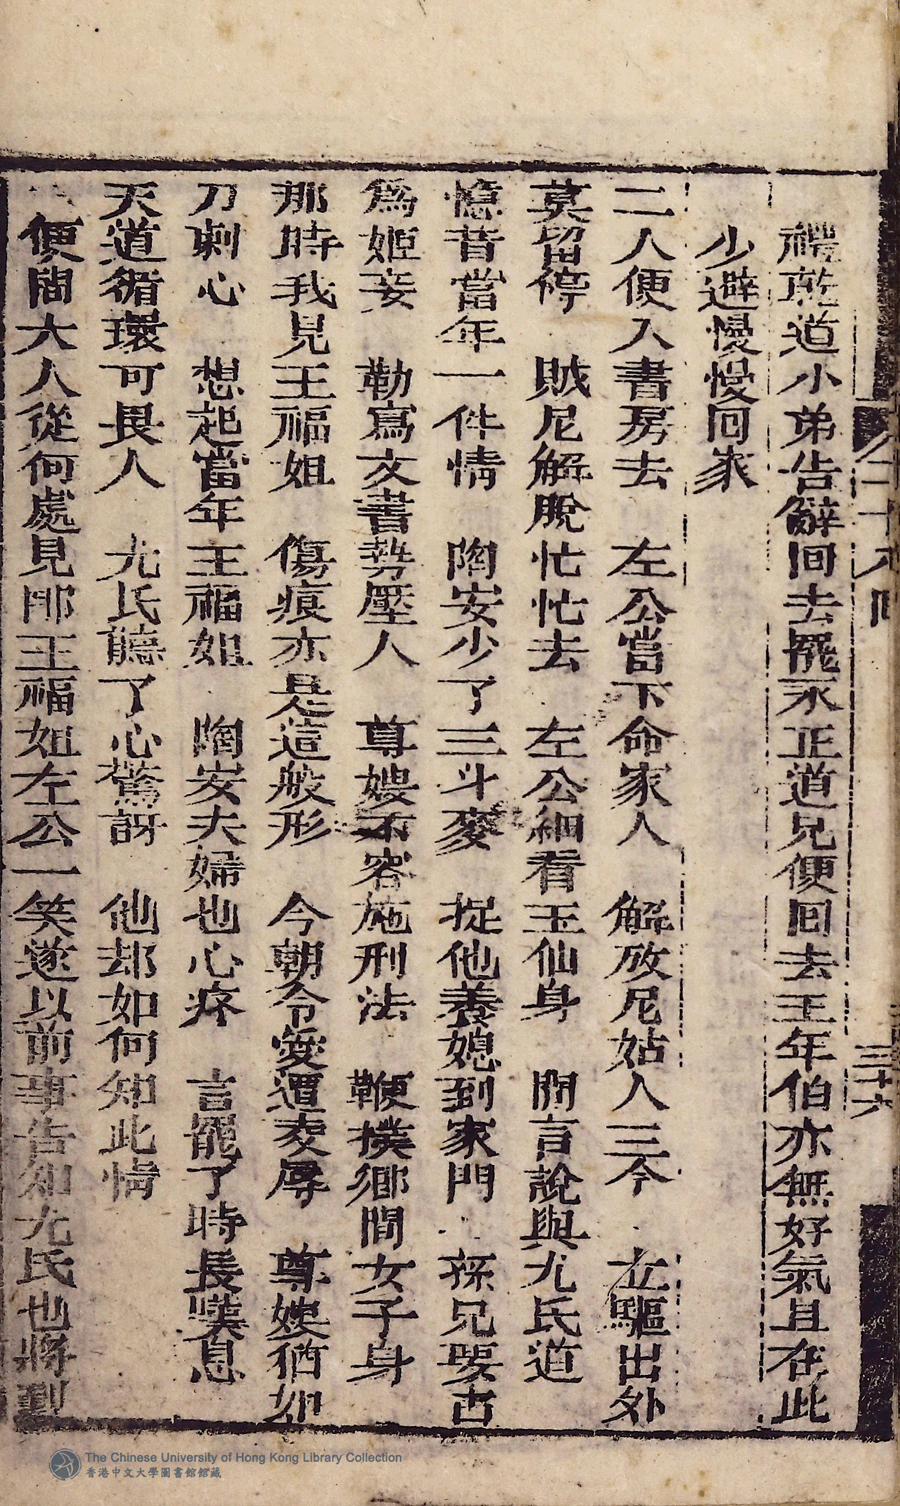 禮乾道小弟告辭回去罷永正道兄便回去王年伯亦無好氣且在此
少避慢慢回家
二人便入書房去 左公當下命家人 解放尼姑人三今 立驅出外
莫留停 賊尼解脫忙忙去 左公細看玉仙身 開言說與尤氏道
憶昔當年一件情 陶安少了三斗麥 捉他養媳到家門 孫兄要占
為姬妾 勒寫文書勢壓人 尊嫂不容施刑法 鞭撲鄉間女子身
那時我見王福姐 傷痕亦是這般形 今朝令愛還凌辱 尊嫂猶如
刀剌心 想起當年王福姐 陶安夫婦也心疼 言罷了時長嘆息
天道循環可畏人 尤氏聽了心驚訝 他却如何知此情
便問大人從何處見那王福姐左公一笑遂以前事告知尤氏也將到
二十八回
三十六
The Chinese University of Hong Kong Library Collection
香港中文大學圖書館館藏